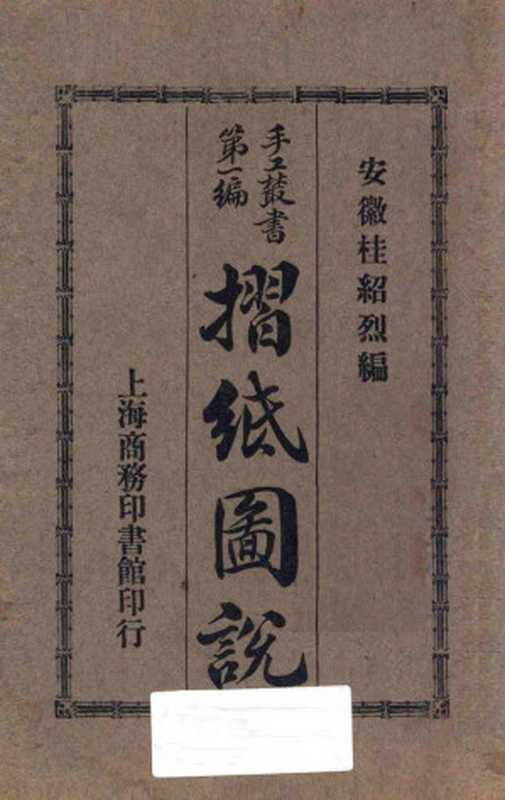 安徽桂紹烈編
手工叢書
第一編
摺紙圖說
上海商務印書館印行